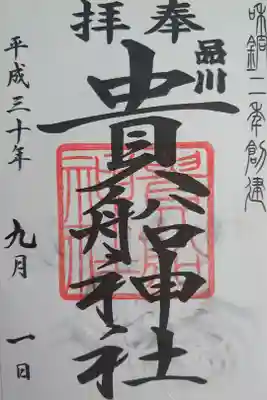 和銅二年創建
奉拝
品川
貴船神社
平成三十年 九月 一日